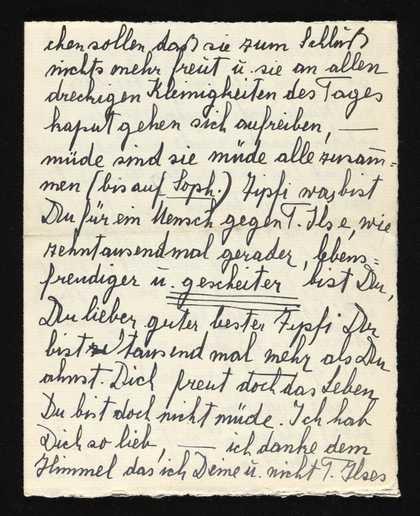 chen sollen, daß sie zum Schluß
nichts mehr freut u. sie an allen
dreckigen Kleinigkeiten des Tages
kaput gehen sich aufreiben, —
müde sind sie müde alle zusam̄-
men (bis auf Soph.) Zipfi was bist
Du für ein Mensch gegen T. Ilse, wie
zehntausendmal gerader, lebens=
freudiger u. gescheiter bist Du,
Du lieber guter bester Zipfi Du
bist tausend mal mehr als Du
ahnst. Dich freut doch das Leben
Du bist doch nicht müde. Ich hab
Dich so lieb, — ich danke dem
Himmel das ich Deine u. nicht T. Ilses